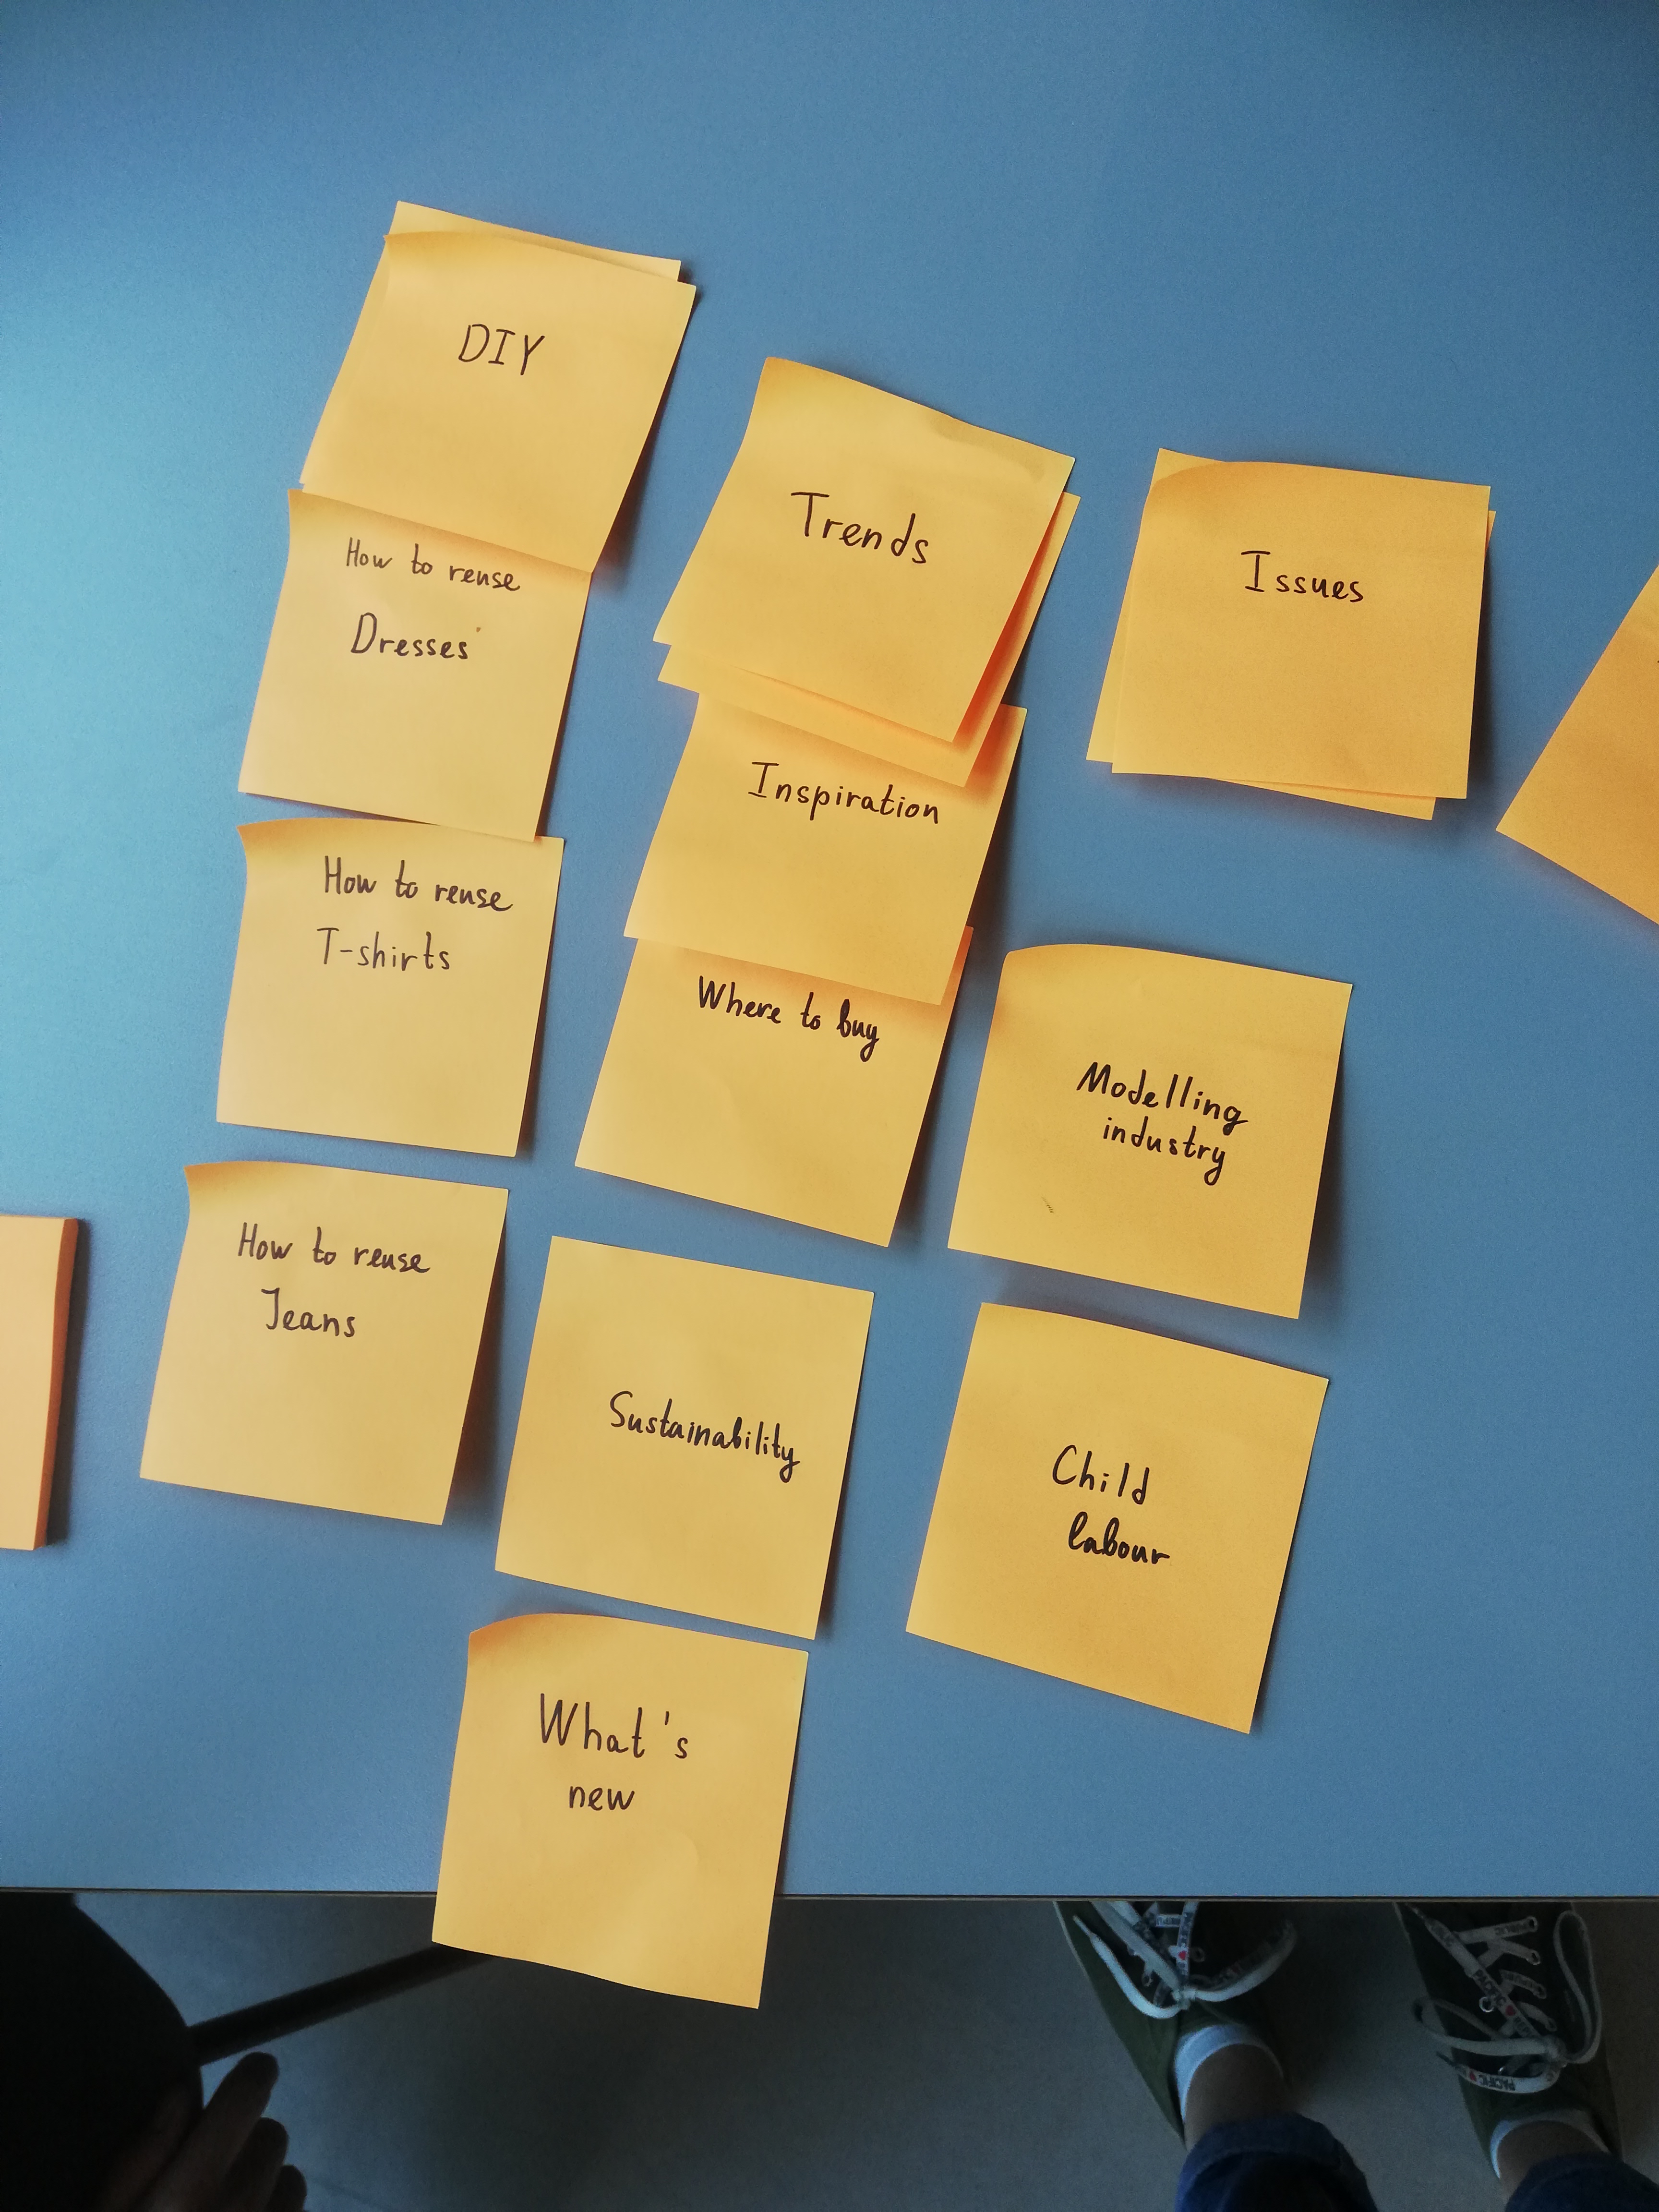 DIY
How to reuse
Dresses
How to reuse
T-shirts
How to reuse
Jeans
Trends
Inspiration
Where to buy
Sustainability
What's
new
Issues
Modelling
industry
Child
labour